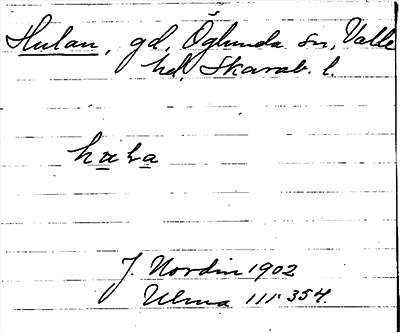 Hulan, gd, Öglunda sn, Valle
hd, Skarab. l.
J. Nordin 1902
Ulma 111:354.